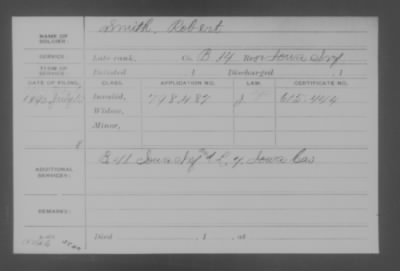 NAME OF SOLDIER: Smith, Robert
SERVICE: Late rank, Co. B, 14 Reg't Iowa Inf
TERM OF SERVICE: Enrolled , 1 Discharged , 1
DATE OF FILING. CLASS. APPLICATION NO. LAW. CERTIFICATE NO.
1890 July Invalid, 798,487 615,444
Widow,
Minor,
ADDITIONAL SERVICES: B 41 Iowa Inf & L, 7, Iowa Cav
REMARKS:
Died , 1 , at